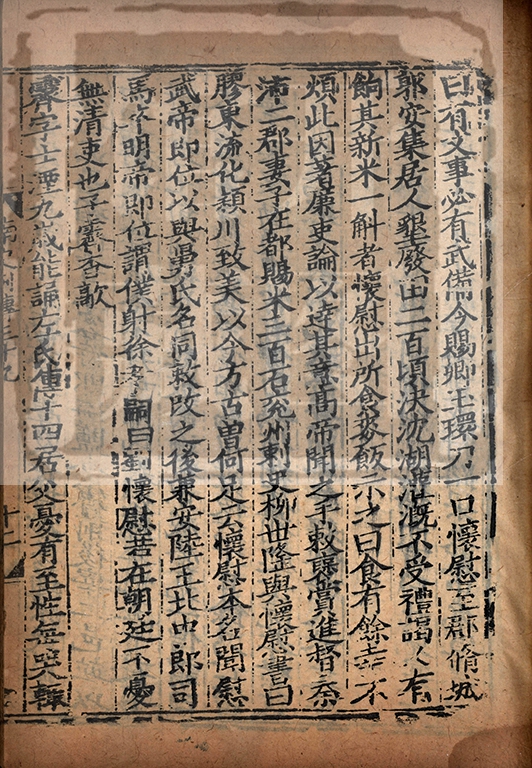 曰有文事必有武備今賜卿玉環刀一口懷慰至郡脩城
郭安集居人墾廢田二百頃決沈湖灌溉不受禮謁人有
餉其新米一斛者懷慰出所食麥飯示之曰食有餘幸不
煩此因著廉吏論以達其意高帝聞之手敕褒賞進督秦
沛二郡妻子在都賜米三百石兗州刺史柳世隆與懷慰書曰
膠東流化潁川致美以今方古曽何足云懷慰本名聞慰
武帝即位以與舅氏名同敕改之後兼安陸王北中郎司
馬卒明帝即位謂僕射徐孝嗣曰劉懷慰若在朝廷不憂
無清吏也子霽杳歊
霽字士湮九歲能誦左氏傳十四居父憂有至性每哭輙
十二